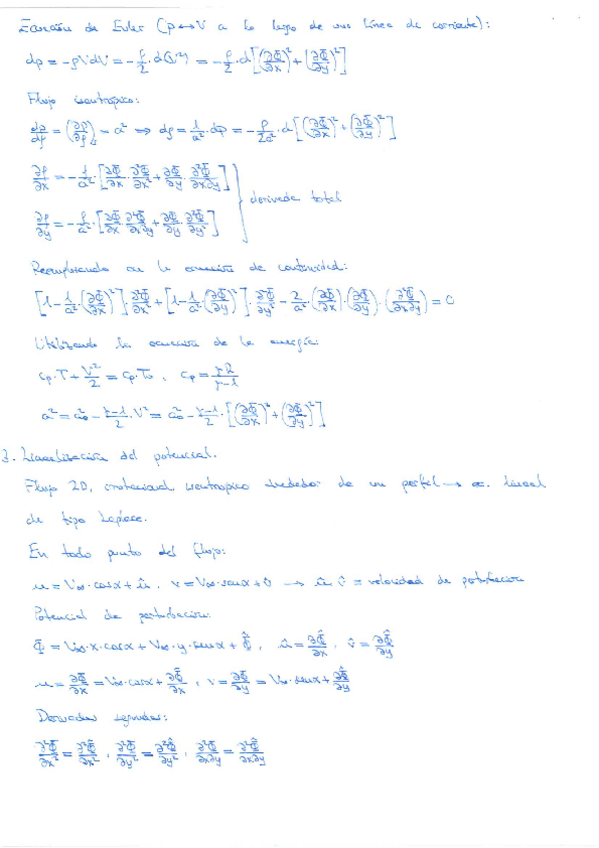 Ecuación de Euler (p↔V a lo largo de una línea de corriente):
dp = -ρVdV = -ρ/2·d(V²) = -ρ/2·d[(∂Φ/∂x)²+(∂Φ/∂y)²]
Flujo isentrópico:
dp/dρ = (∂p/∂ρ)ₛ = a² ⇒ dρ = 1/a²·dp = -ρ/2a²·d[(∂Φ/∂x)²+(∂Φ/∂y)²]
∂ρ/∂x = -ρ/a²·[∂Φ/∂x·∂²Φ/∂x²+∂Φ/∂y·∂²Φ/∂x∂y]
derivada total
∂ρ/∂y = -ρ/a²·[∂Φ/∂x ∂²Φ/∂x∂y+∂Φ/∂y·∂²Φ/∂y²]
Reemplazando en la ecuación de continuidad:
[1-1/a²·(∂Φ/∂x)²]·∂²Φ/∂x²+[1-1/a²·(∂Φ/∂y)²]·∂²Φ/∂y²-2/a²·(∂Φ/∂x)·(∂Φ/∂y)·(∂²Φ/∂x∂y)=0
Utilizando la ecuación de la energía:
cp·T+V²/2 = cp·T₀, cp = γR/γ-1
a² = a₀²-γ-1/2·V² = a₀²-γ-1/2·[(∂Φ/∂x)²+(∂Φ/∂y)²]
3. Linealización del potencial.
Flujo 2D, irrotacional, isentrópico alrededor de un perfil → ec. lineal
de tipo Laplace.
En todo punto del flujo:
u = V∞·cosα+û, v = V∞·senα+v̂ → û, v̂ = velocidad de perturbación
Potencial de perturbación:
Φ = V∞·x·cosα+V∞·y·senα+Φ̂, û = ∂Φ̂/∂x, v̂ = ∂Φ̂/∂y
u = ∂Φ/∂x = V∞·cosα+∂Φ̂/∂x, v = ∂Φ/∂y = V∞·senα+∂Φ̂/∂y
Derivadas segundas:
∂²Φ/∂x² = ∂²Φ̂/∂x², ∂²Φ/∂y² = ∂²Φ̂/∂y², ∂²Φ/∂x∂y = ∂²Φ̂/∂x∂y